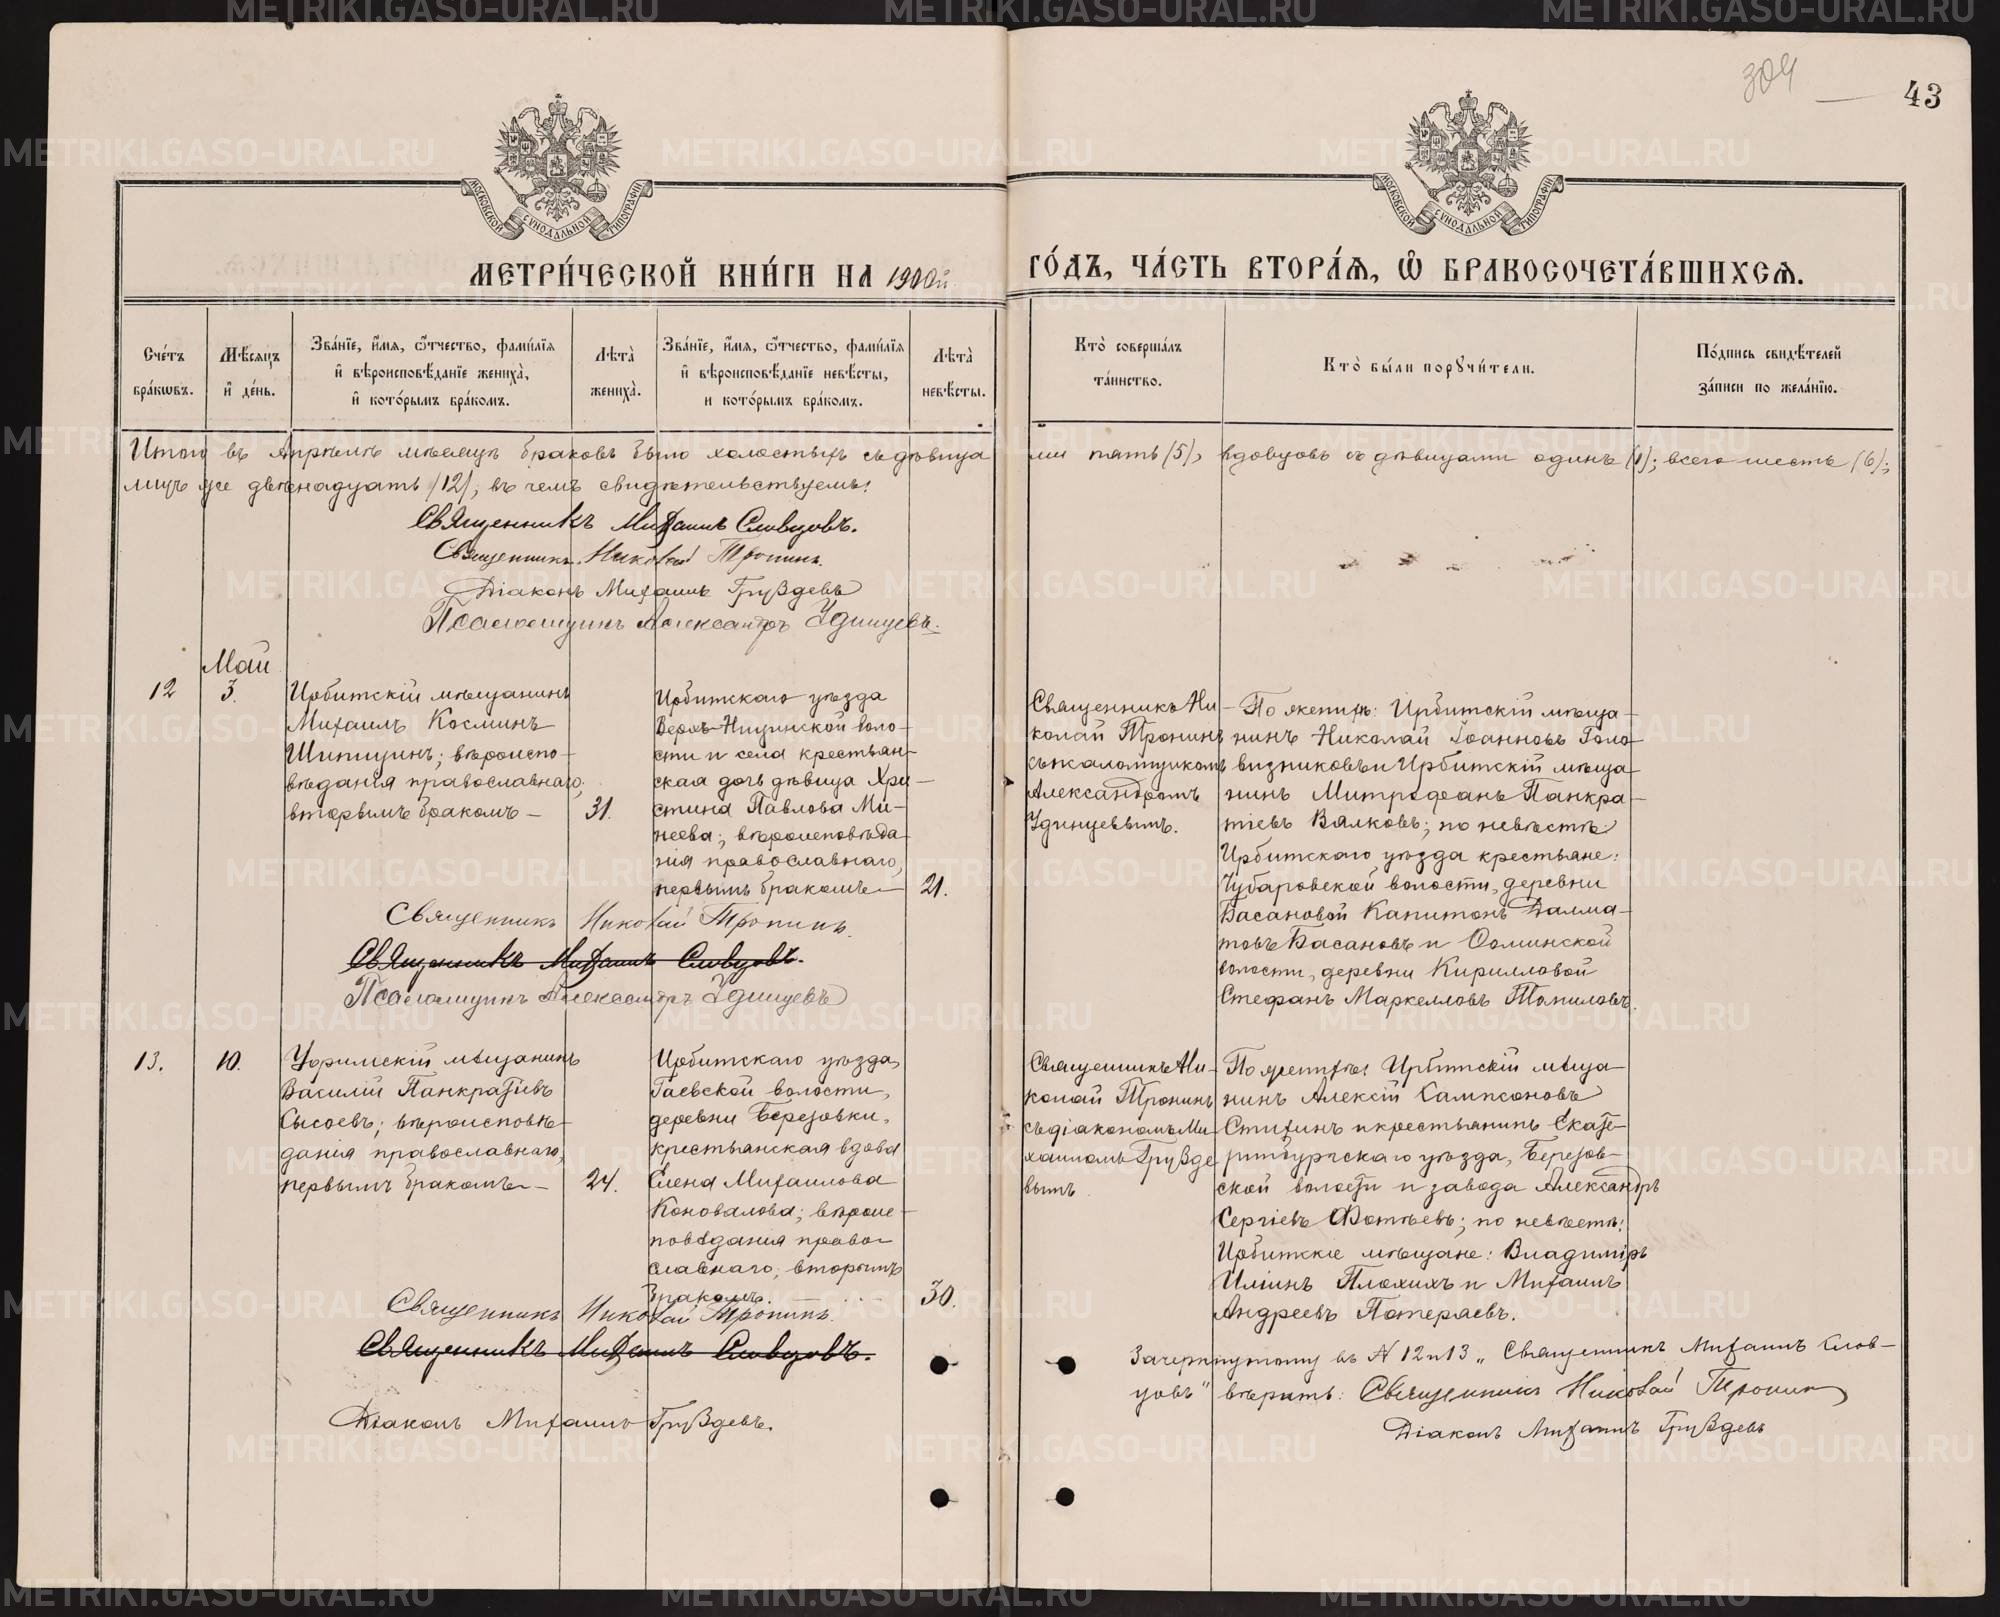 304
43
МОСКОВСКОЙ СУНОДАЛЬНОЙ ТИПОГРАФІИ
МОСКОВСКОЙ СУНОДАЛЬНОЙ ТИПОГРАФІИ
МЕТРИ́ЧЕСКОЙ КНИ́ГИ НА 1900й ГО́ДЪ, ЧА́СТЬ ВТОРА́Ѧ, Ѡ҆ БРАКОСОЧЕТА́ВШИХСѦ.
Сче́тъ бра́кѡвъ.
Мѣ́сѧцъ и҆ де́нь.
Зва́нїе, и҆́мѧ, ѻ҆́тчество, фами́лїѧ и҆ вѣроисповѣ́данїе жениха̀, и҆ кото́рымъ бра́комъ.
Лѣта̀ жениха̀.
Зва́нїе, и҆́мѧ, ѻ҆́тчество, фами́лїѧ и҆ вѣроисповѣ́данїе невѣ́сты, и кото́рымъ бра́комъ.
Лѣта̀ невѣ́сты.
Кто̀ соверша́лъ та́инство.
Кто̀ бы́ли порꙋчи́тели.
По́дпись свидѣ́телей за́писи по жела́нїю.
Итого въ Апрѣлѣ мѣсяцѣ браковъ было холостыхъ съ дѣвица
ми пять (5), вдовцовъ съ дѣвицами одинъ (1); всего шесть (6);
лицъ же двѣнадцать (12), въ чемъ свидѣтельствуемъ:
Священникъ Михаилъ Словцовъ.
Священникъ Николай Тронинъ.
Діаконъ Михаилъ Груздевъ
Псаломщикъ Александръ Удинцевъ.
Май
12
3.
Ирбитскій мѣщанинъ
Михаилъ Косминъ
Шипицинъ; вѣроиспо-
вѣданія православнаго,
вторымъ бракомъ –
31.
Ирбитскаго уѣзда
Верхъ-Ницинской воло-
сти и села крестьян-
ская дочь дѣвица Хри-
стина Павлова Ми-
неева; вѣроисповѣда-
нія православнаго,
первымъ бракомъ –
21.
Священникъ Ни-
колай Тронинъ
съ псаломщикомъ
Александромъ
Удинцевымъ.
По женихѣ: Ирбитскій мѣща-
нинъ Николай Іоанновъ Голо-
визниковъ и Ирбитскій мѣща-
нинъ Митрофанъ Панкра-
тіевъ Вялковъ; по невѣстѣ:
Ирбитскаго уѣзда крестьяне:
Чубаровской волости, деревни
Басановой Капитонъ Далма-
товъ Басановъ и
волости, деревни Кирилловой
Стефанъ Маркелловъ Томиловъ.
Священникъ Николай Тронинъ.
Священникъ Михаилъ Словцовъ.
Псаломщикъ Александръ Удинцевъ
13.
10.
Уфимскій мѣщанинъ
Василій Панкратіевъ
Сысоевъ; вѣроисповѣ-
данія православнаго,
первымъ бракомъ –
24.
Ирбитскаго уѣзда,
Гаевской волости,
деревни Березовки,
крестьянская вдова
Елена Михаилова
Коновалова; вѣроис-
повѣданія право-
славнаго, вторымъ
бракомъ.
30.
Священникъ Ни-
колай Тронинъ
съ діакономъ Ми-
хаиломъ Груздε
вымъ
По женихѣ: Ирбитскій мѣща-
нинъ Алексій Сампсоновъ
Стихинъ и крестьянинъ Екате-
ринбургскаго уѣзда, Березов-
ской волости и завода Александръ
Сергіевъ Фотѣевъ; по невѣстѣ:
Ирбитскіе мѣщане: Владиміръ
Иліинъ Плохихъ и Михаилъ
Андреевъ Потеряевъ.
Священникъ Николай Тронинъ.
Священникъ Михаилъ Словцовъ.
Діаконъ Михаилъ Груздевъ.
Зачеркнутому въ № 12 и 13 „Священникъ Михаилъ Слов-
цовъ" вѣрить: Священникъ Николай Тронин
Діаконъ Михаилъ Груздевъ
METRIKI.GASO-URAL.RU